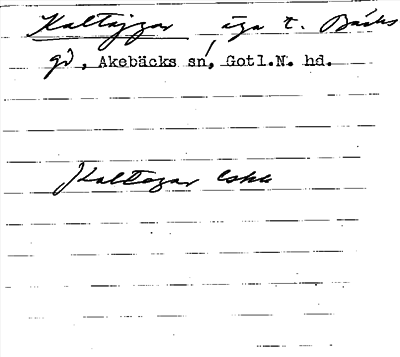 Kaltajgar äga t. Bäcks
gd, Akebäcks sn, Gotl.N. hd.
Kaltagar